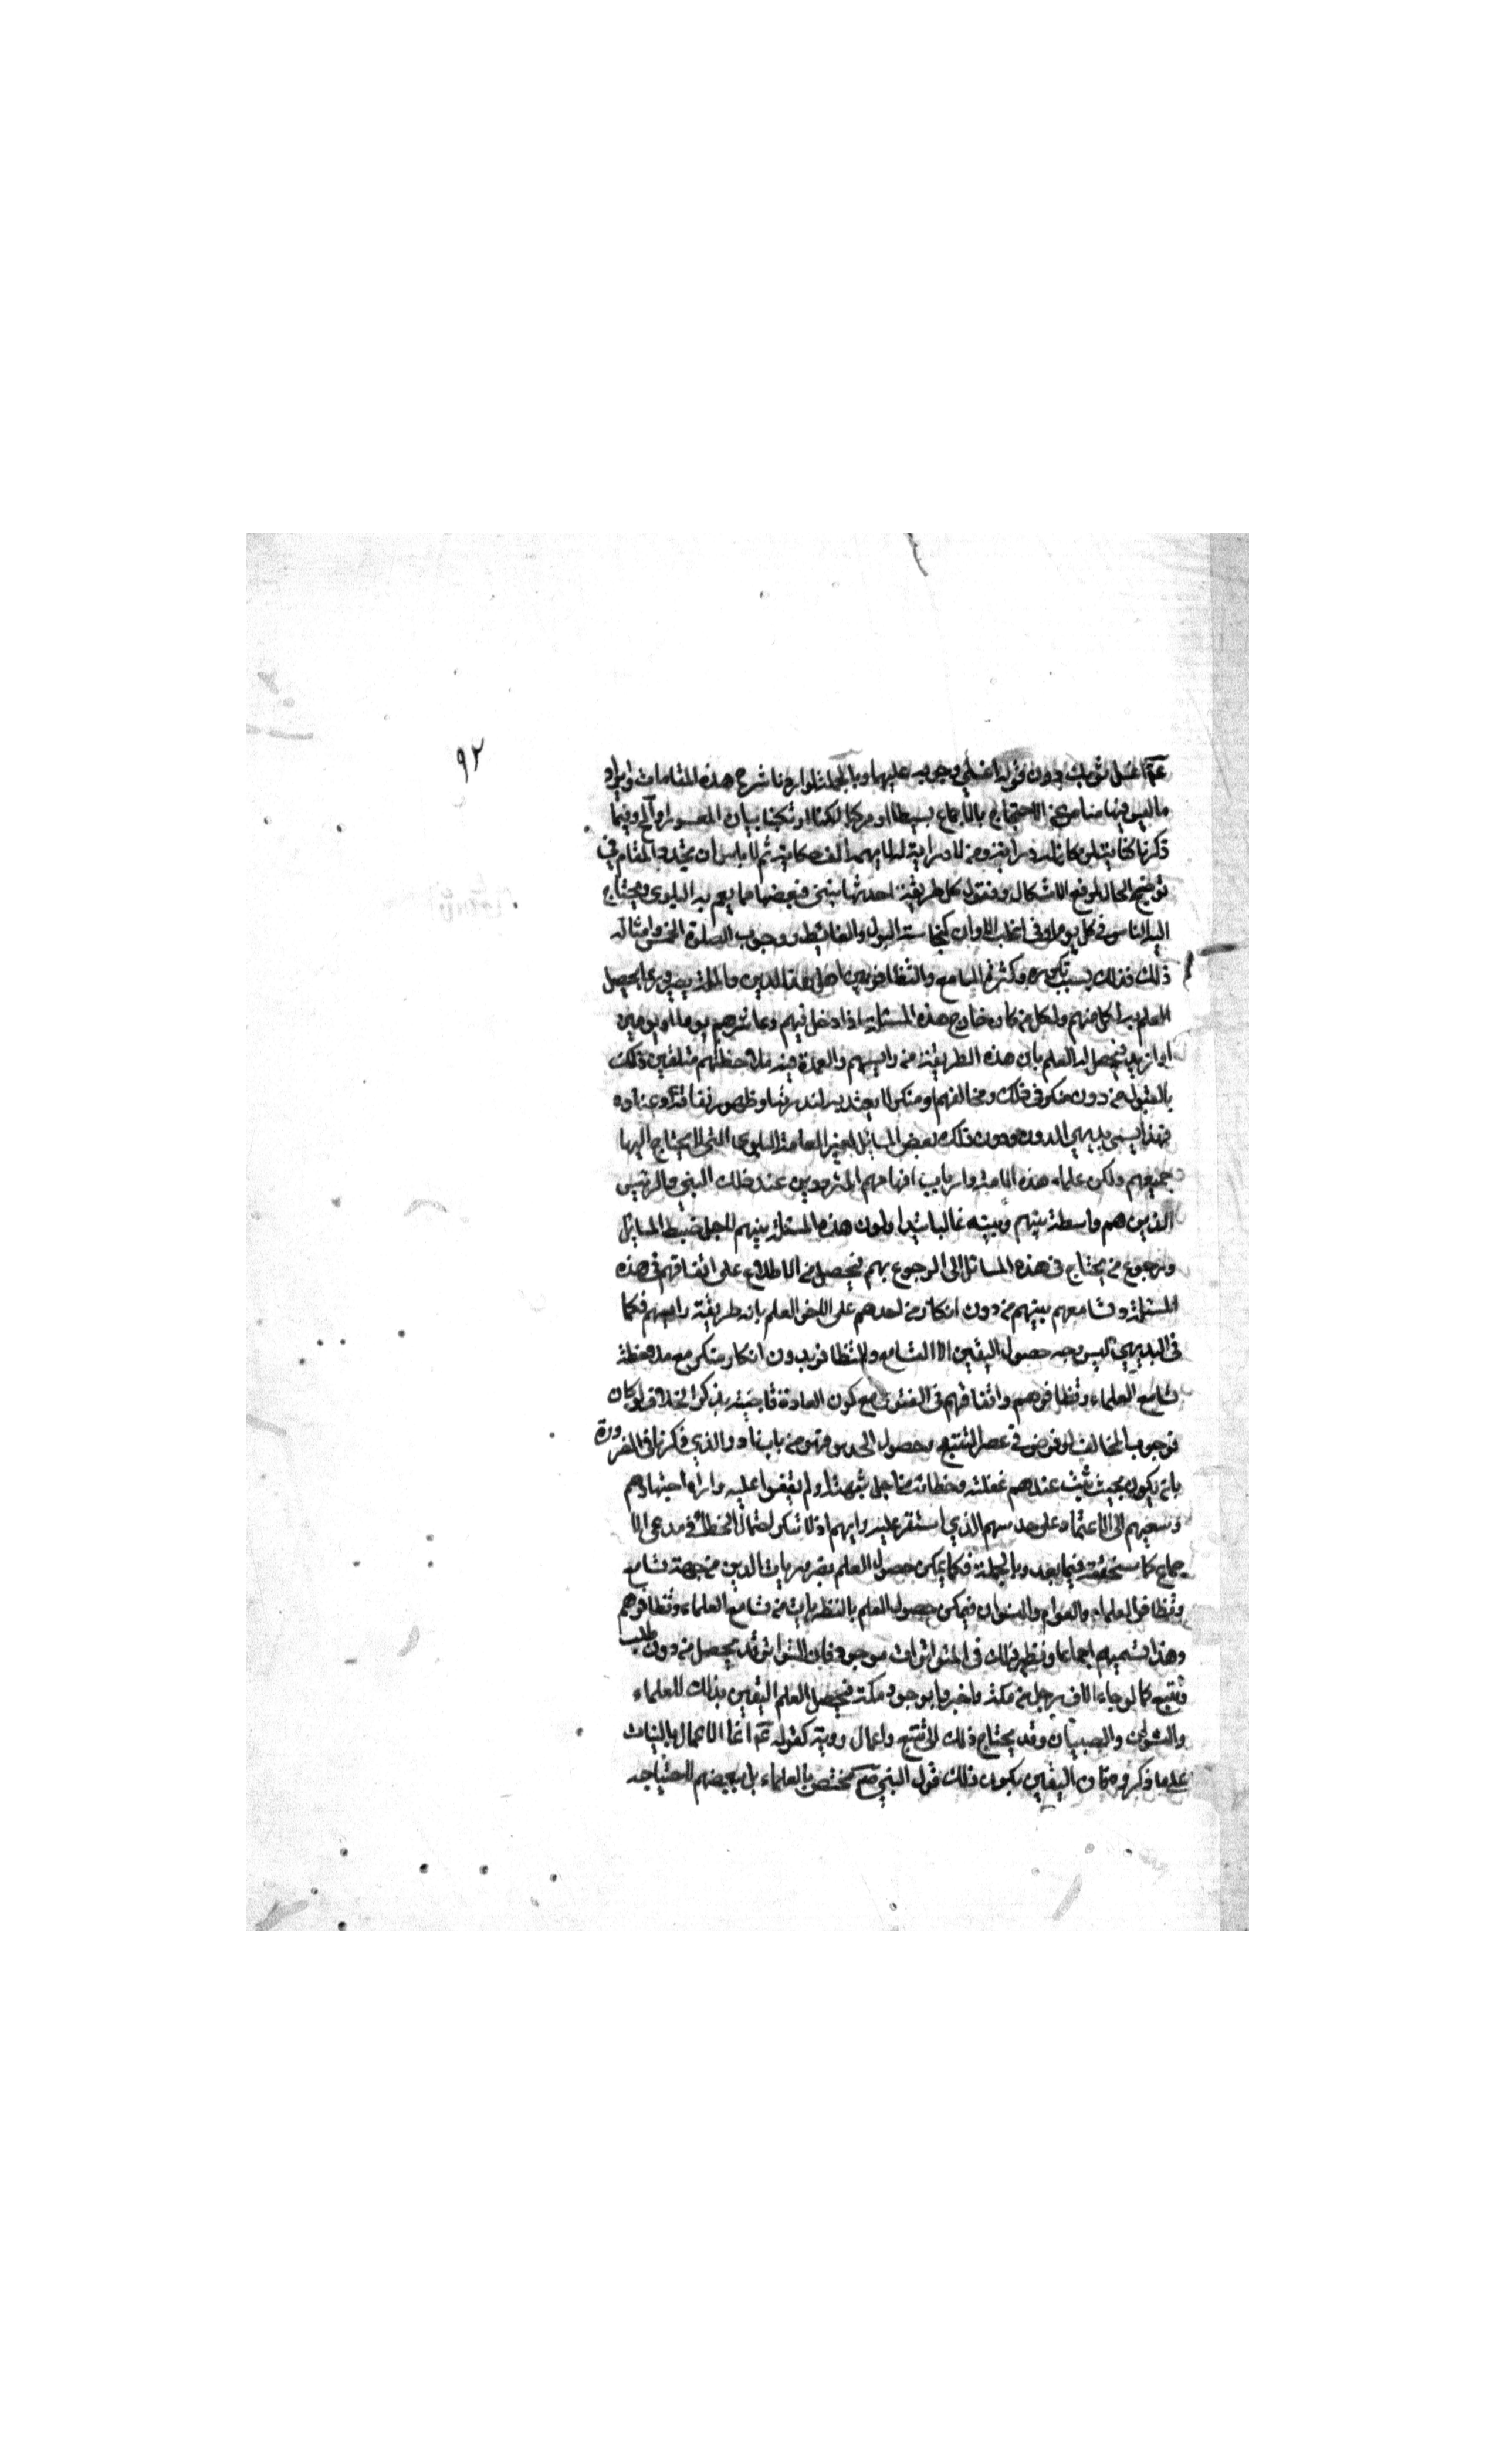 ٩٢
اغسل ثوبك دون قوله اغسلي وجوبه عليهما وبالجملة لو اردنا شرح هذه المقامات وايراد
ما ليس فيها مناص عن الاحتجاج بالاجماع بسيطا او مركبا لكنا ارتكبنا بيان المعسور او المح وفيما
ذكرنا كفاية لمن كان له دراية ومن لا دراية له لا يهمه الف حكاية ثم لا باس ان نجدد المقام في
توضيح الحال لرفع الاشكال ونقول كل طريقة احدثها نبي فبعضها مما يعم به البلوى ويحتاج
اليه الناس في كل يوم او في اغلب الاوان كنجاسة البول والغائط ووجوب الصلوة الخمس وامثال
ذلك فذلك بسبب تكرره وكثرة التسامع والتظافر بين اهل هذا الدين والملة يصير بديهيا يحصل
العلم به لكل منهم ولكل من كان خارج هذه المسئلة اذا دخل فيهم وعاشرهم يوما او يومين
او ازيد فيحصل له العلم بان هذه الطريقة من رئيسهم والعمدة فيه ملاحظتهم متلقين ذلك
بالقبول من دون منكر في ذلك ومخالفهم او منكر لا يعتد به لندرتها وظهور نفاقه او عناده
فهذا يسمى بديهي الدين ودون ذلك بعض المسائل الغير العامة البلوى التي لا يحتاج اليها
جميعهم ولكن علماء هذه الامة وارباب افهامهم المترددين عند ذلك النبي والرئيس
الذين هم واسطة بينهم وبينه غالبا يتداولون هذه المسئلة بينهم لاجل ضبط المسائل
ورجوع من يحتاج في هذه المسائل الى الرجوع بهم فيحصل من الاطلاع على اتفاقهم في هذه
المسئلة وتسامعهم بينهم من دون انكار من احدهم على الاخر العلم بانه طريقة رئيسهم فكما
في البديهي ليس وجه حصول اليقين الا التسامع والتظافر بدون انكار منكر مع ملاحظة
تسامع العلماء وتظافرهم واتفاقهم في الفتوى مع كون العادة قاضية بذكر الخلاف لو كان
فوجوب المخالف لو فرض في عصر التتبع وحصول الحدس فهو من باب ناد والذي ذكرنا في الضرورة
بان يكون بحيث ثبت عندهم غفلته وخطائه من اجل شبهة ولم يقفوا عليه واراه اجتهادهم
وسعيهم الى الاعتماد على حدسهم الذي استقر عليه رايهم اذ لا ننكر احتمال الخطاء في مدعى الا
جماع كما سنحققه فيما بعد وبالجملة فكما يمكن حصول العلم بضروريات الدين من جهة تسامع
وتظافر العلماء والعوام والنسوان فيمكن حصول العلم بالنظريات من تسامع العلماء وتظافرهم
وهذا نسميهم اجماعا ونظير ذلك في المتواترات موجود فان التواتر قد يحصل من دون طلب
وتتبع كما لو جاء الاف رجل من مكة واخبروا بوجود مكة فيحصل العلم اليقين بذلك للعلماء
والنسوان والصبيان وقد يحتاج ذلك الى تتبع واعمال روية كقوله ع انما الاعمال بالنيات
على ما ذكروه فان اليقين بكون ذلك قول النبي ص مختص بالعلماء بل ببعضهم لاحتياجه